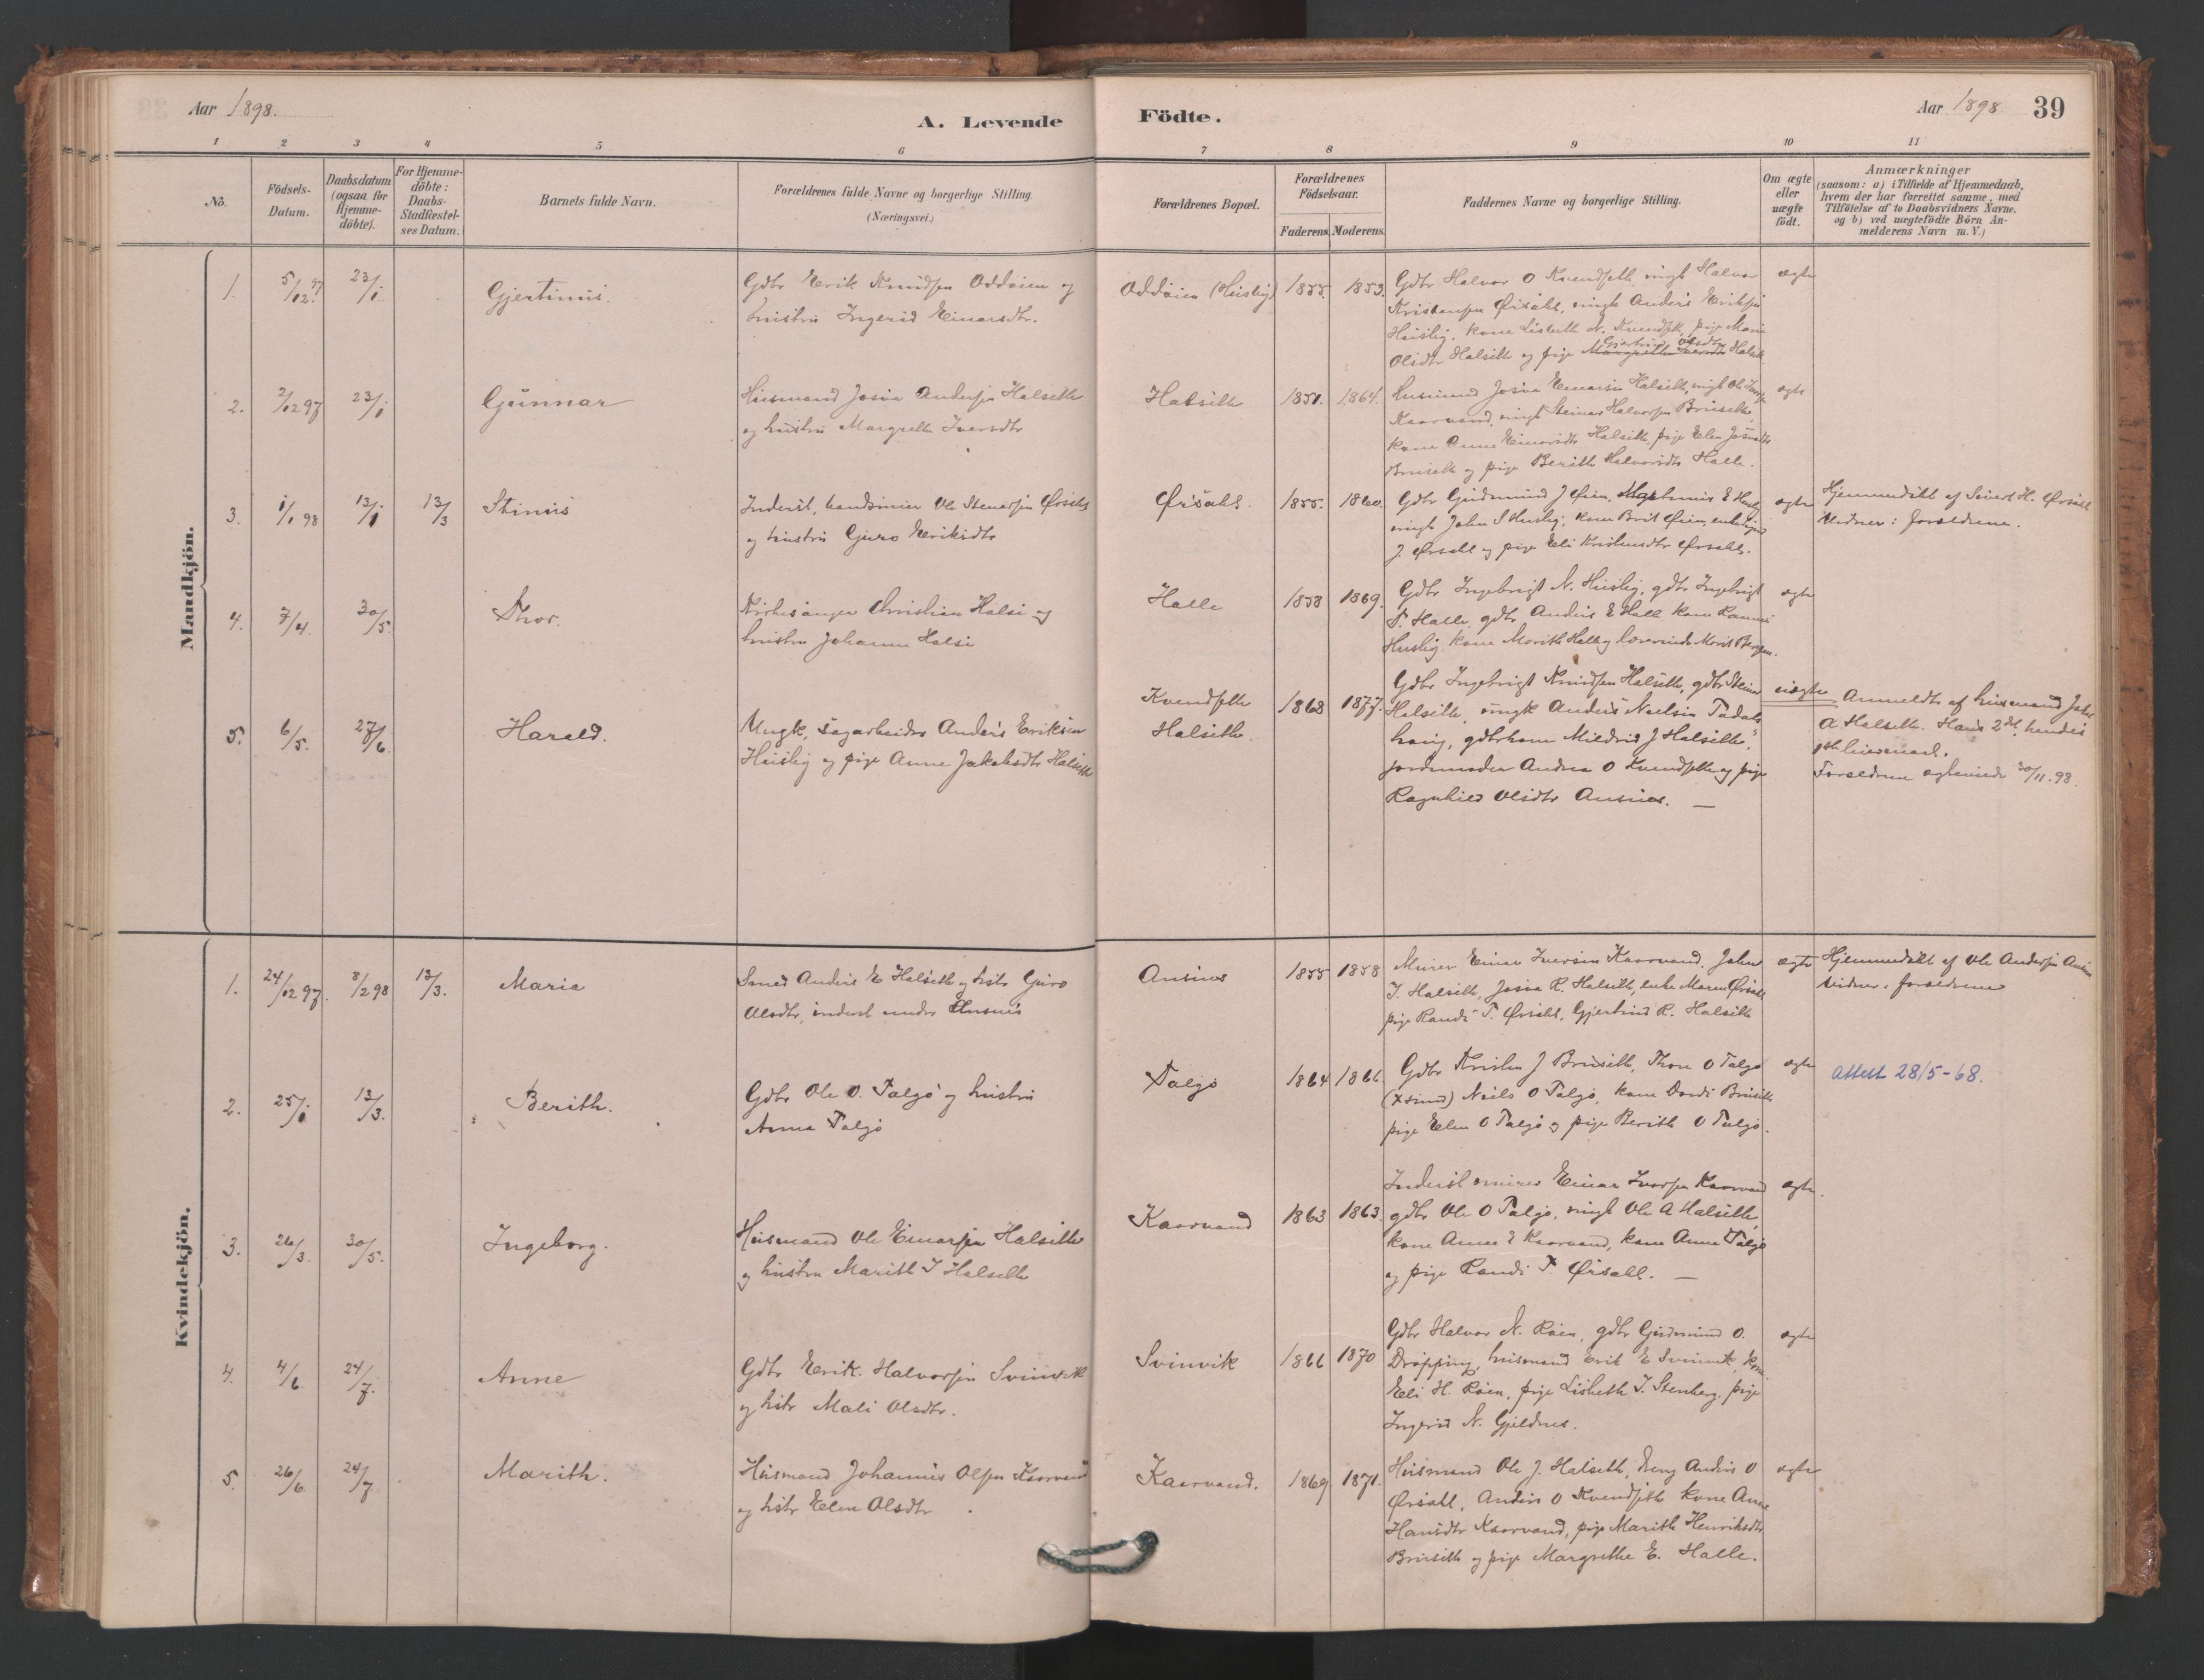 Aar 1898.
A. Levende Födte.
Aar 1898 39
1 2 3 4 5 6 7 8 9 10 11
No.
Födsels-Datum.
Daabsdatum (ogsaa for Hjemme-döbte).
For Hjemme-döbte: Daabs-Stadfæstel-ses Datum.
Barnets fulde Navn.
Forældrenes fulde Navne og borgerlige Stilling.
(Næringsvei.)
Forældrenes Bopæl.
Forældrenes Födselsaar.
Faderens. Moderens.
Faddernes Navne og borgerlige Stilling.
Om ægte eller uægte födt.
Anmærkninger
(saasom: a) i Tilfælde af Hjemmedaab,
hvem der har forrettet samme, med
Tilföielse af to Daabsvidners Navne.
og b) ved uægtefödte Börn An-
melderens Navn m. V.)
Mandkjön.
1. 5/12 97 23/1 Gjertinus.
Gdbr Erik Knudsen Oddøien og
hustru Ingerid Einarsdtr.
Oddøien (Husby) 1855. 1853.
Gdbr Halvor O Kvendseth, ungk Halvor
Kristensen Ørsahl, ungk Anders Eriksen
Husby, kone Lisbeth N. Kvendseth, pige Marie
Olsdtr Halseth og pige Gjertrud Olsdtr Halseth
ægte
2. 2/12 97 23/1 Gunnar
Husmand Josva Andersen Halseth
og hustru Margrethe Iversdtr
Halseth 1851. 1864.
Husmand Josva Einarsen Halseth, ungk Ole Iversen
Kaarvand, ungk Steinar Halvorsen Bruseth,
kone Anne Einarsdtr Halseth, pige Elen Josvadtr
Bruseth og pige Berith Halvorsdtr Halle.
ægte
3. 1/1 98 13/1 13/3 Stinus
Inderst, Ole Stenersen Ørsahl
og hustru Guro Eriksdtr
Ørsahl. 1855. 1860.
Gdbr Gudmund J Øien, E Husby
ungk John S Husby, kone Brit Øien, enke
J. Ørsahl og pige Eli Kristensdtr Ørsahl.
ægte
Hjemmedøbt af Sivert H. Ørsahl
Vidner: forældrene.
4. 7/4. 30/5. Thor.
Kirkesanger Christian Halse og
hustru Johanne Halse
Halle 1858 1869.
Gdbr Ingebrigt N. Husby, gdbr Ingebrigt
T. Halle, gdbr Anders E Halle kone
Husby, kone Marith Halle og lærerinde Marit
ægte
5. 6/5. 27/6. Harald.
Ungk, sagarbeider Anders Eriksen
Husby og pige Anne Jakobsdtr Halseth
Kvendseth
Halseth. 1868 1877.
Gdbr Ingebrigt Knudsen Halseth, gdbr Steinar
Halseth, ungk Anders Nielsen Todals
haug, gdbrkone Mildrid J Halseth,
jordmoder Andrea O Kvendseth og pige
Ragnhild Olsdtr Ansnes. —
uægte
Anmeldt af husmand John
A Halseth. Hans 2det, hendes
1ste leiermaal.
Forældrene ægteviede 30/11.98.
Kvindekjön.
1. 24/12 97. 8/2 98 13/3. Maria
Smed Anders E Halseth og hstr Guro
Olsdtr, inderst under Ansnes
Ansnes 1855 1858
Murer Einar Iversen Kaarvand, John
J. Halseth, Josva R. Halseth, enke Maren Ørsahl
pige Randi T. Ørsahl, Gjertrud R. Halseth
ægte
Hjemmedøbt af Ole Andersen Ansnes
Vidner: forældrene
2. 25/1 13/3. Berith.
Gdbr Ole O. Talgø og hustru
Anna Talgø
Talgø 1864 1866
Gdbr Kristen J Bruseth, Thore O Talgø
Niels O Talgø, kone Dordi Bruseth
pige Elen O Talgø og pige Berith O Talgø.
ægte
Attest 28/5-68.
3. 26/3. 30/5. Ingeborg.
Husmand Ole Einarsen Halseth
og hustru Marith I Halseth
Kaarvand 1863 1863.
Inderst murer Einar Iversen Kaarvand
gdbr Ole O Talgø, ungk Ole A Halseth,
kone Anne E Kaarvand, kone Anne Talgø
og pige Randi T Ørsahl. —
ægte.
4. 4/6. 24/7. Anne
Gdbr Erik Halvorsen Svinvik
og hstr Mali Olsdtr.
Svinvik 1866 1870
Gdbr Halvor N. Røen, gdbr Gudmund O.
Drøpping, husmand Erik E Svinvik, kone
Eli H. Røen, pige Lisbeth I. Stenberg, pige
Ingerid N. Gjeldnes.
ægte
5. 26/6 24/7 Marith.
Husmand Johannes Olsen Kaarvand
og hstr Elen Olsdtr
Kaarvand. 1869. 1871.
Husmand Ole J. Halseth, dreng Anders O
Ørsahl, Anders O Kvendseth kone Anne
Hansdtr Kaarvand, pige Marith Henriksdtr
Bruseth og pige Margrethe E. Halle.
ægte